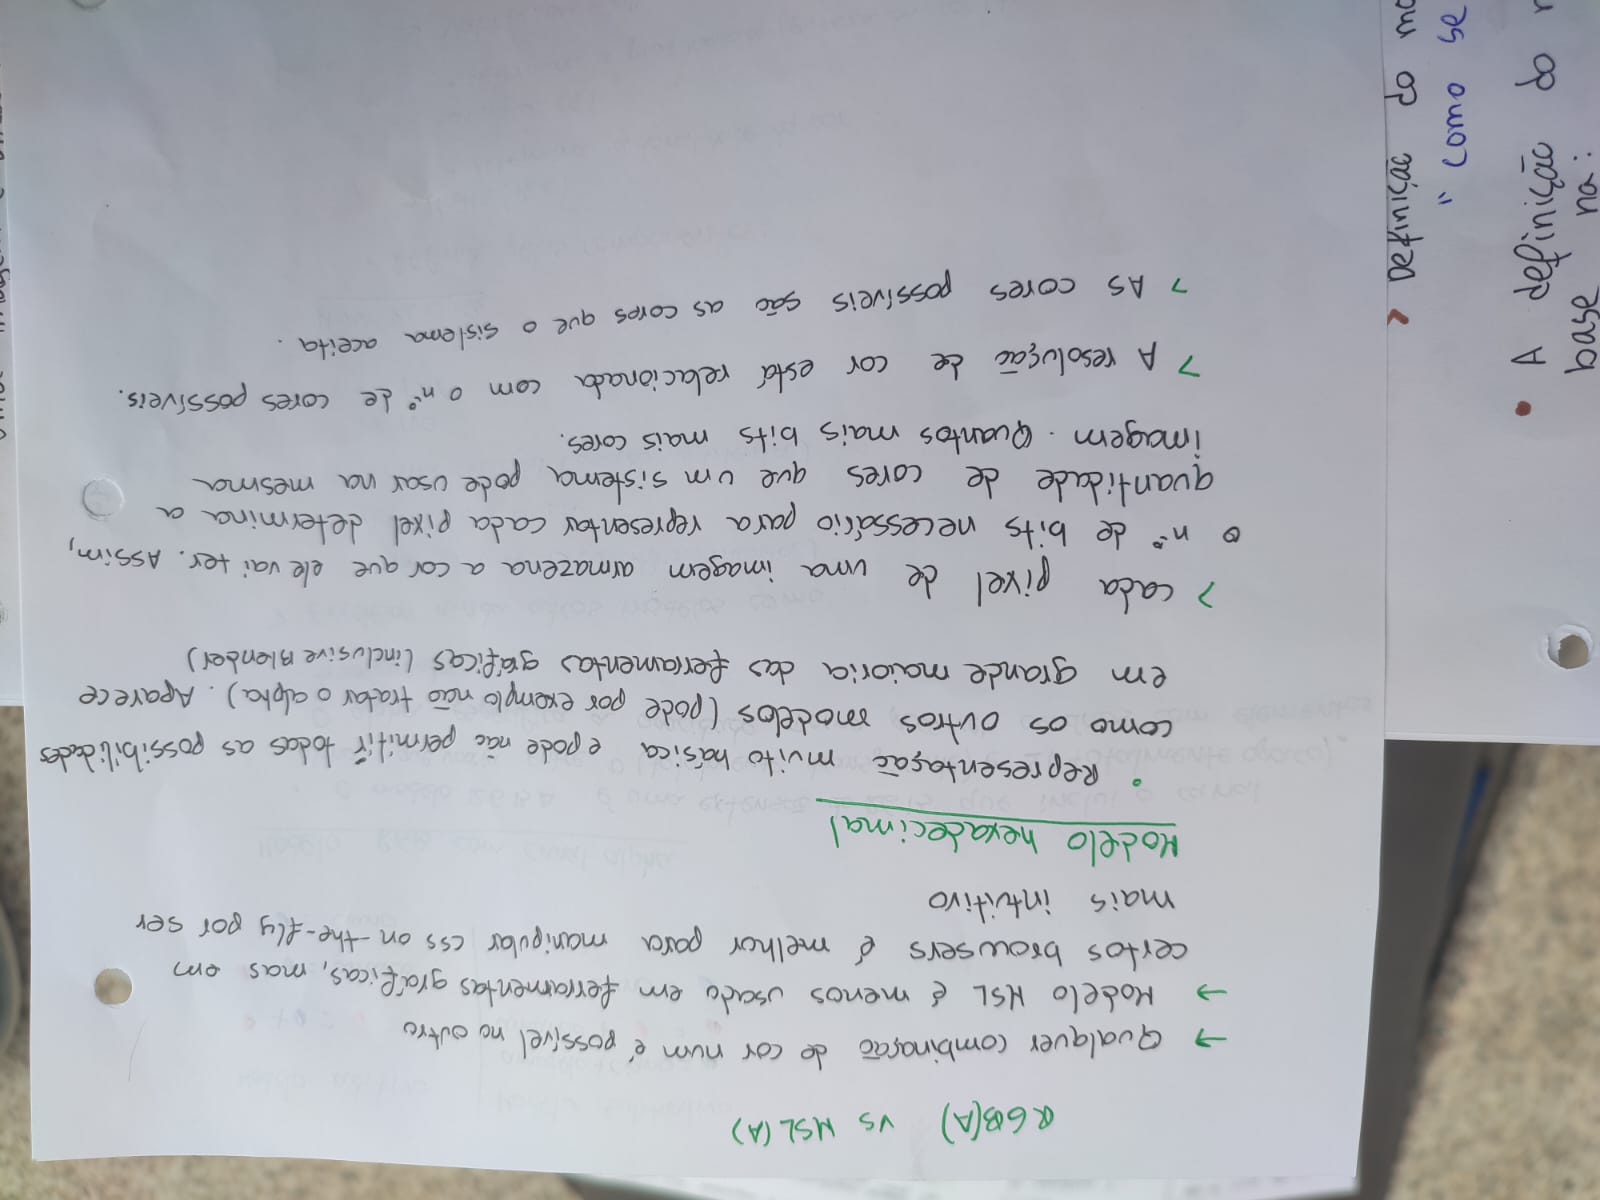 RGB(A) vs HSL(A)
→ Qualquer combinação de cor num é possível no outro
→ Modelo HSL é menos usado em ferramentas gráficas, mas em
certos browsers é melhor para manipular css on-the-fly por ser
mais intuitivo
Modelo hexadecimal
• Representação muito básica e pode não permitir todas as possibilidades
como os outros modelos (pode por exemplo não tratar o alpha). Aparece
em grande maioria das ferramentas gráficas (inclusive Blender)
> cada pixel de uma imagem armazena a cor que ele vai ter. Assim,
o n.º de bits necessário para representar cada pixel determina a
quantidade de cores que um sistema pode usar na mesma
imagem. Quantos mais bits mais cores.
> A resolução de cor está relacionada com o nº de cores possíveis.
> As cores possíveis são as cores que o sistema aceita.
> Definição do mo
" Como se
• A definição do
base na: